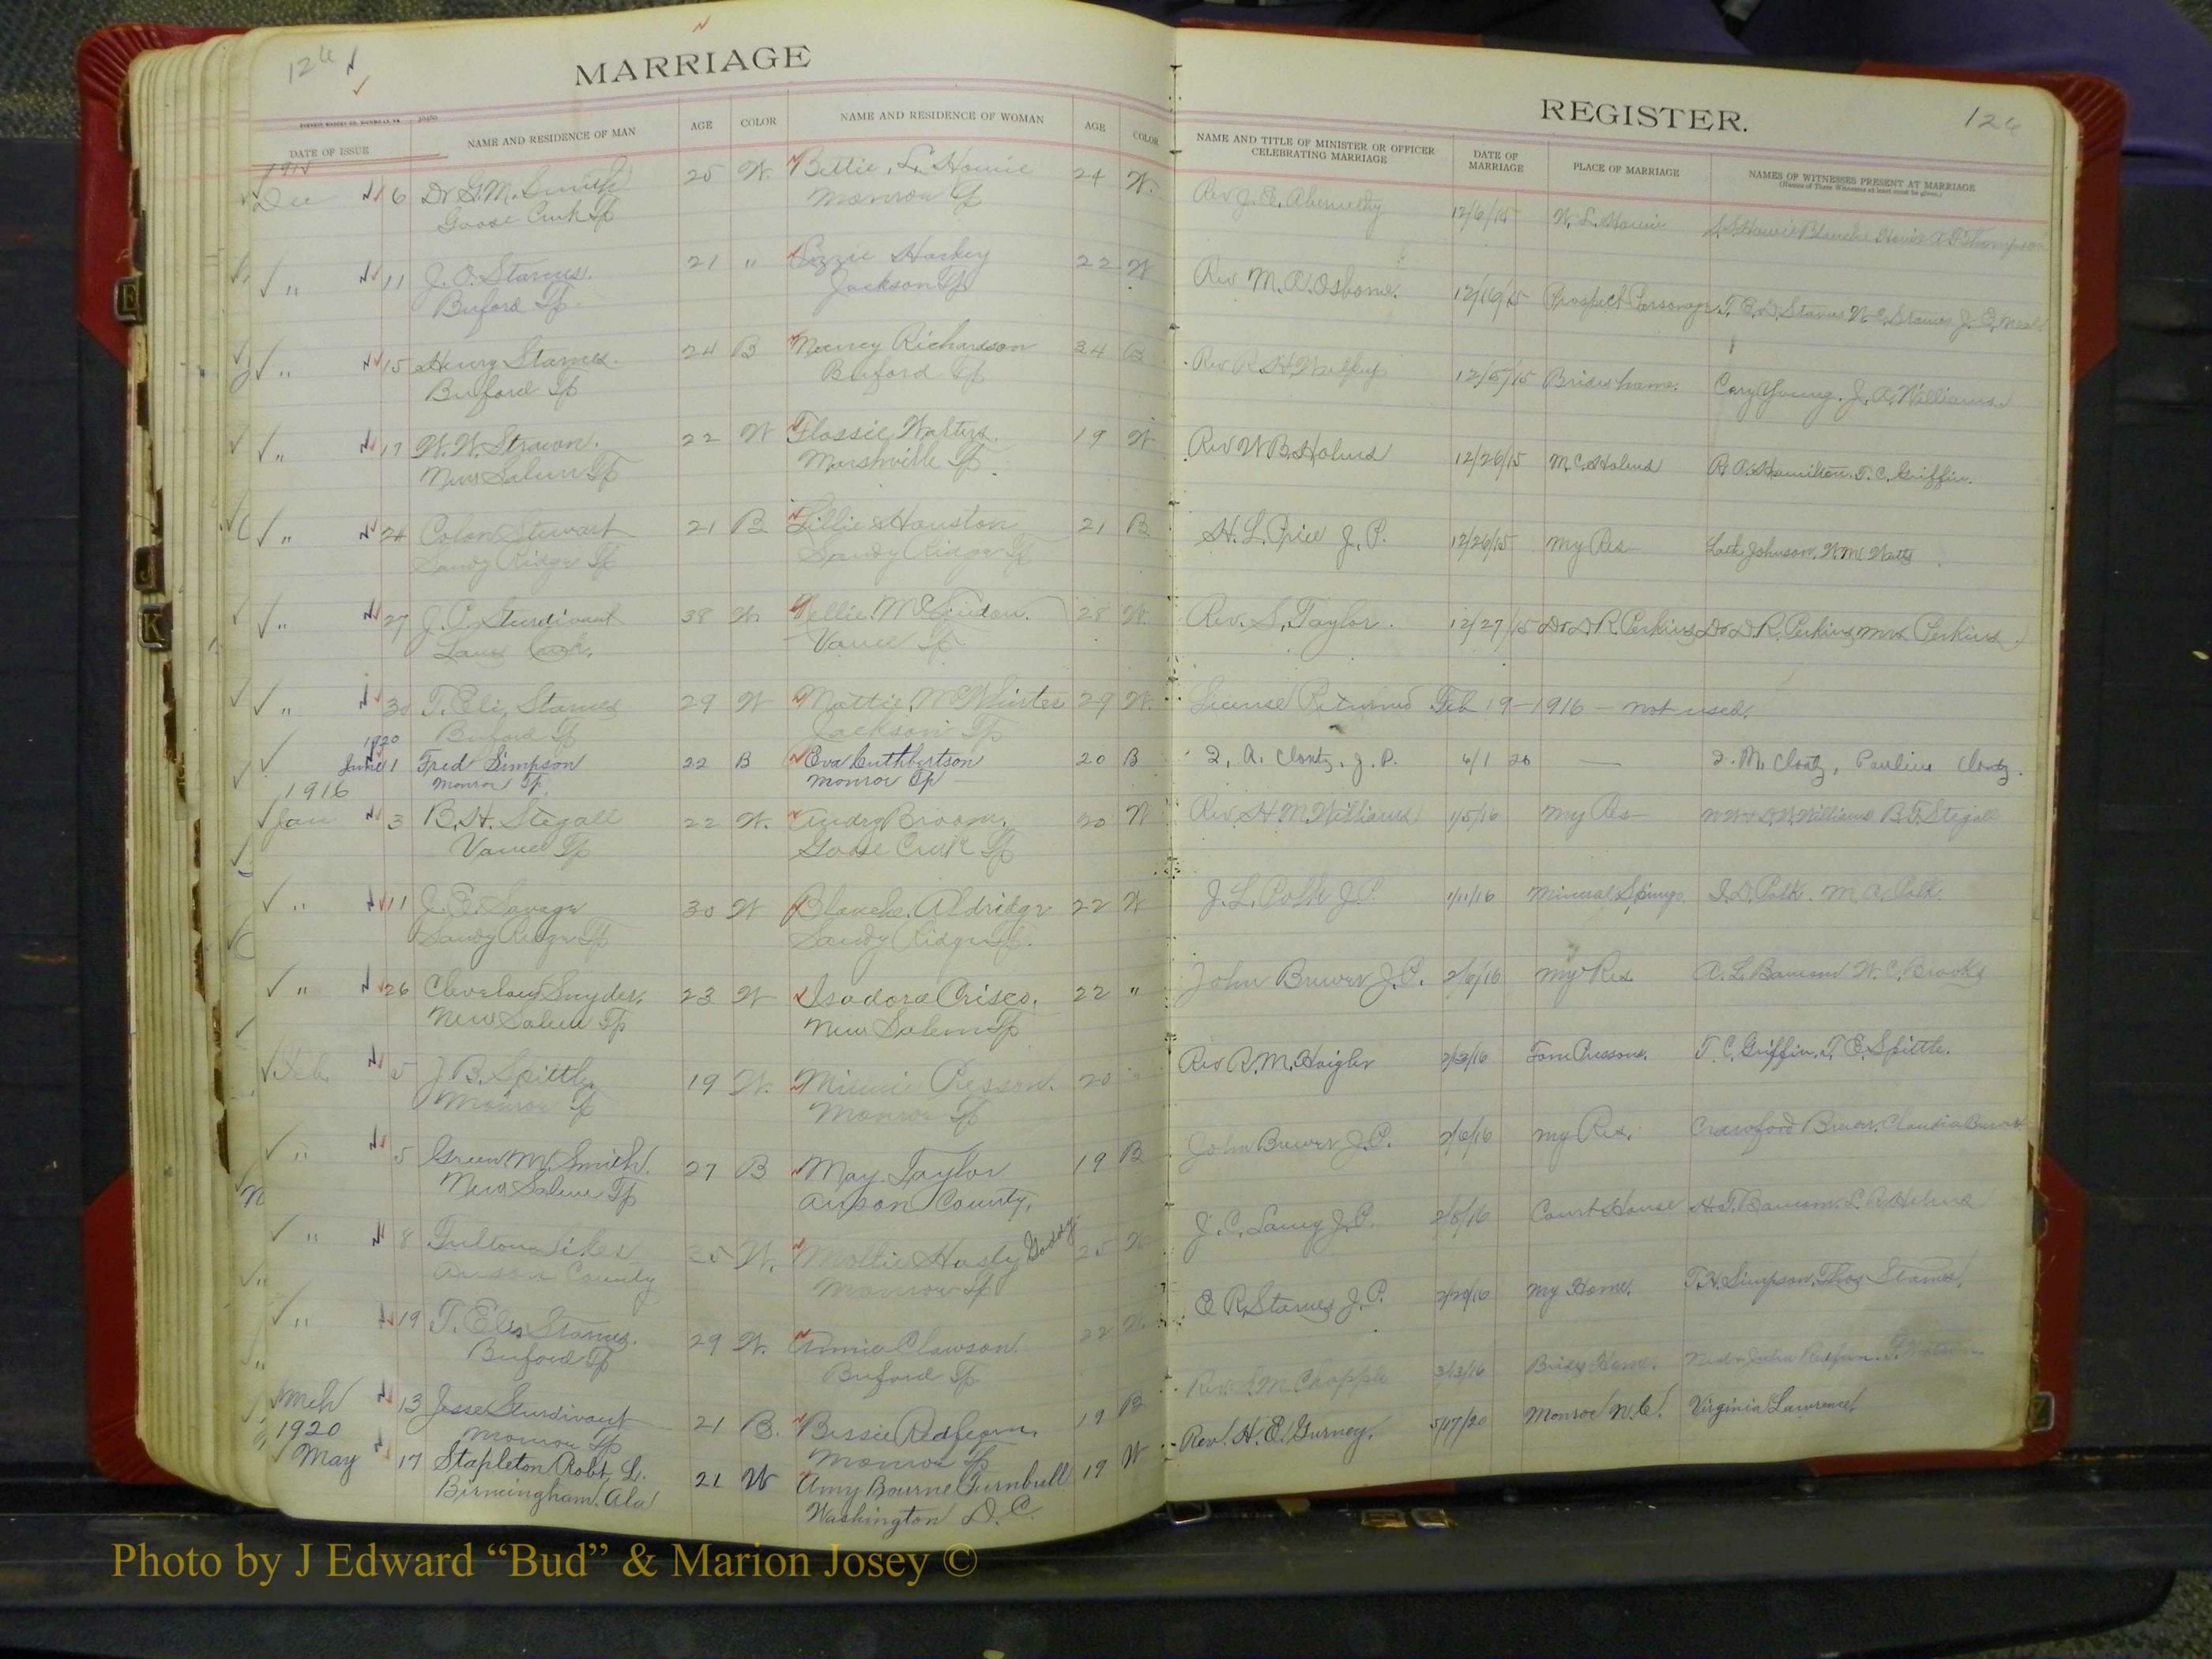 126
MARRIAGE
DATE OF ISSUE
NAME AND RESIDENCE OF MAN
AGE
COLOR
NAME AND RESIDENCE OF WOMAN
AGE
COLOR
1915
Dec 6 Dr S.M. Smith 25 W. Bettie L. Howie 24 W.
Goose Creek Tp Monroe Tp
" 11 J. O. Starnes. 21 " Lizzie Harkey 22 W
Buford Tp Jackson Tp
" 15 Henry Starnes. 24 B Richardson 34 B
Buford Tp Buford Tp
" 17 W. W. Strawn. 22 W Flossie Walters. 19 W
New Salem Tp Marshville Tp
" 24 Colon Stewart 21 B Lillie Houston 21 B
Sandy Ridge Tp Sandy Ridge Tp
" 27 J. P. Sturdivant 38 W Nellie 28 W.
Lanes Creek. Vance Tp
" 30 T. Eli Starnes 29 W Mattie McWhirter 29 W.
Buford Tp Jackson Tp
1920
June 1 Fred Simpson 22 B Eva Cuthbertson 20 B
Monroe Tp. Monroe Tp
1916
Jan 3 B. H. Stegall 22 W. Broom. 20 W
Vance Tp Goose Creek Tp
" 11 J. E. Savage 30 W Blanche Aldridge 22 W
Sandy Ridge Tp Sandy Ridge Tp.
" 26 Cleveland Snyder. 23 W Isadora Crisco. 22 "
New Salem Tp New Salem Tp
Feb. 5 J. B. Spittle. 19 W. Minnie Presson. 20 "
Monroe Tp Monroe Tp
" 5 Green M. Smith. 27 B May Taylor 19 B
New Salem Tp Anson County.
" 8 Fulton Sikes 35 W. Mollie Hasty 25 W
Anson County Monroe Tp
" 19 T. Eli Starnes. 29 W. Annie Clawson 22 W.
Buford Tp Buford Tp
Mch 13 Jesse Sturdivant 21 B. Bessie Redfearn. 19 B
Monroe Tp Monroe Tp
1920
May 17 Stapleton Robt. L. 21 W Amy Bourne Turnbull 19 W
Birmingham. Ala Washington D.C.
REGISTER.
126
NAME AND TITLE OF MINISTER OR OFFICER
CELEBRATING MARRIAGE
DATE OF
MARRIAGE
PLACE OF MARRIAGE
NAMES OF WITNESSES PRESENT AT MARRIAGE
(Names of Three Witnesses at least must be given.)
Rev J. E. Abernethy 12/6/15 W. L. Howie Howie Blanche Howie Thompson
Rev M. A. Osborne. 12/16/15 Prospect Parsonage T. E. D. Starnes W. C. Starnes
Rev R. H. 12/15/15 Brides home. Cary Young. J. A. Williams.
Rev W B. Helms 12/26/15 M. C. Helms R. A. Hamilton. T. C. Griffin.
H. L. Price J. P. 12/26/15 My Res Johnson. W. M. Watts
Rev. S. Taylor. 12/27/15 Dr D R. Perkins Dr D. R. Perkins Mrs Perkins
License Returned Feb 19-1916 — not used.
A. Clontz. J. P. 6/1 20 — M. Clontz, Clontz.
Rev. H M. Williams 1/5/16 My Res Williams B. F. Stegall
J. L. Polk J. P. 1/11/16 Mineral Springs I. D. Polk. M. A. Polk.
John Brewer J. P. 2/6/16 My Res. W. C. Brooks
Rev R. M. Haigler 2/13/16 Tom Pressons. T. C. Griffin. T. E. Spittle.
John Brewer J. P. 2/6/16 My Res. Crawford Brewer. Claudia Brewer
J. C. Laney J. P. 2/8/16 Court House H. F. Baucom. L. A. Helms
E R. Starnes J. P. 2/20/16 My Home. T. H. Simpson. Thos Starnes.
Rev. M. Chapple 3/13/16 Brides Home. Redfearn.
Rev. H. E. Gurney. 5/17/20 Monroe N.C. Virginia Lawrence.
Photo by J Edward “Bud” & Marion Josey ©